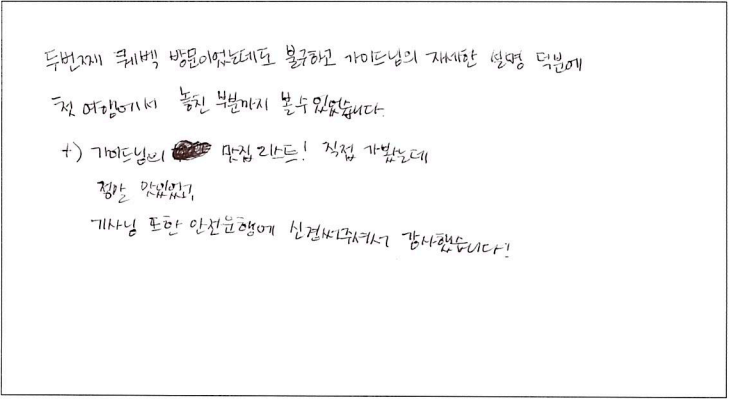 두번째 퀘벡 방문이었는데도 불구하고 가이드님의 자세한 설명 덕분에
첫 여행에서 놓친 부분까지 볼 수 있었습니다.
+) 가이드님의 맛집 리스트! 직접 가봤는데
정말 맛있었고,
기사님 또한 안전운행에 신경써주셔서 감사했습니다!